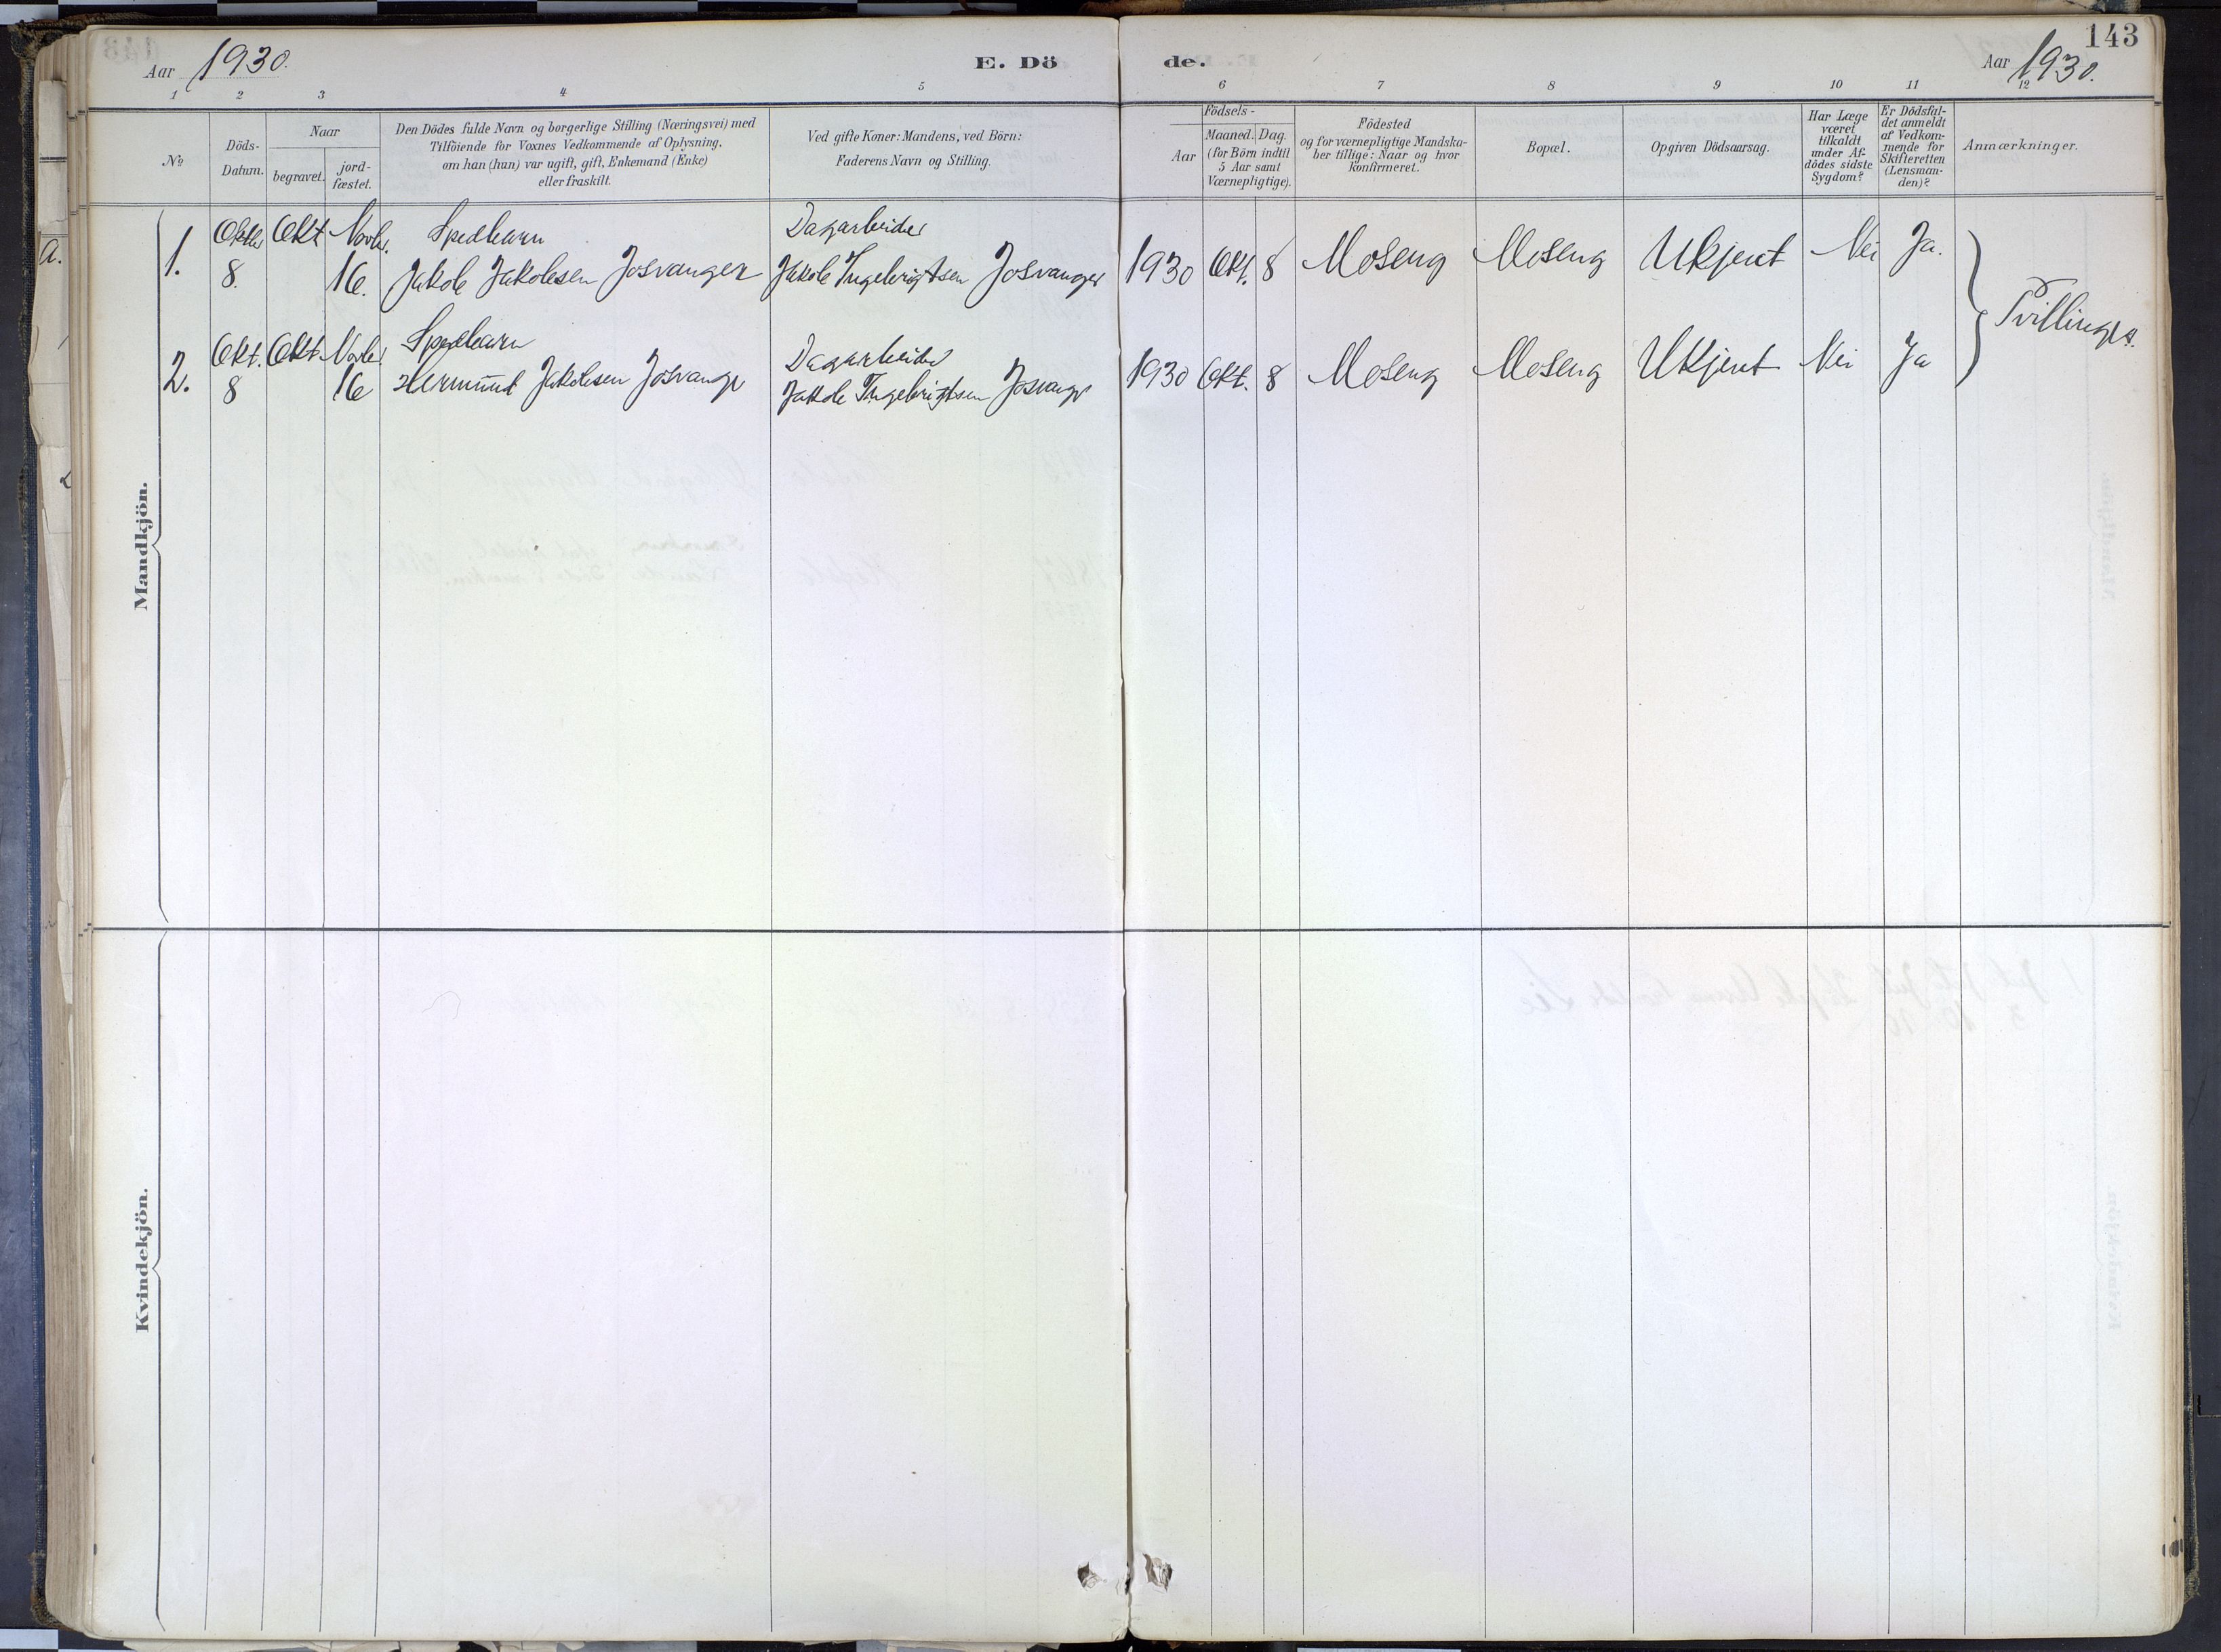 143
Aar 1930.
E. Dö
de.
Aar 1930.
1 2 3 4 5 6 7 8 9 10 11 12
№
Döds-
Datum.
Naar
begravet.
jord-
fæstet.
Den Dödes fulde Navn og borgerlige Stilling (Næringsvei) med
Tilföiende for Voxnes Vedkommende af Oplysning,
om han (hun) var ugift, gift, Enkemand (Enke)
eller fraskilt.
Ved gifte Koner: Mandens, ved Börn:
Faderens Navn og Stilling.
Födsels-
Aar
Maaned. Dag.
(for Börn indtil
5 Aar samt
Værnepligtige).
Födested
og for værnepligtige Mandska-
ber tillige: Naar og hvor
konfirmeret.
Bopæl.
Opgiven Dödsaarsag.
Har Læge
været
tilkaldt
under Af-
dödes sidste
Sygdom?
Er Dödsfal-
det anmeldt
af Vedkom-
mende for
Skifteretten
(Lensman-
den)?
Anmærkninger.
Mandkjön.
1. Oktbr Okt Novbr. Spedbarn Dagarbeider
8. 16. Jakob Jakobsen Josvanger Jakob Ingebrigtsen Josvanger 1930 Okt. 8 Moseng Moseng Ukjent Nei Ja.
Tvillinger.
2. Okt. Okt. Novbr Spedbarn Dagarbeider
8 16 Hermund Jakobsen Josvanger Jakob Ingebrigtsen Josvanger 1930 Okt. 8 Moseng Moseng Ukjent Nei Ja
Kvindekjön.